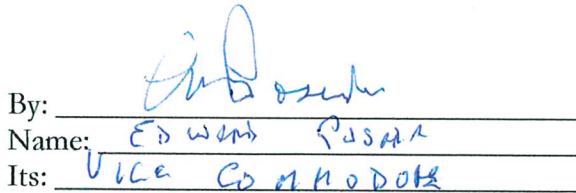 By:
Name: EDWARD
Its: VICE COMMODORE